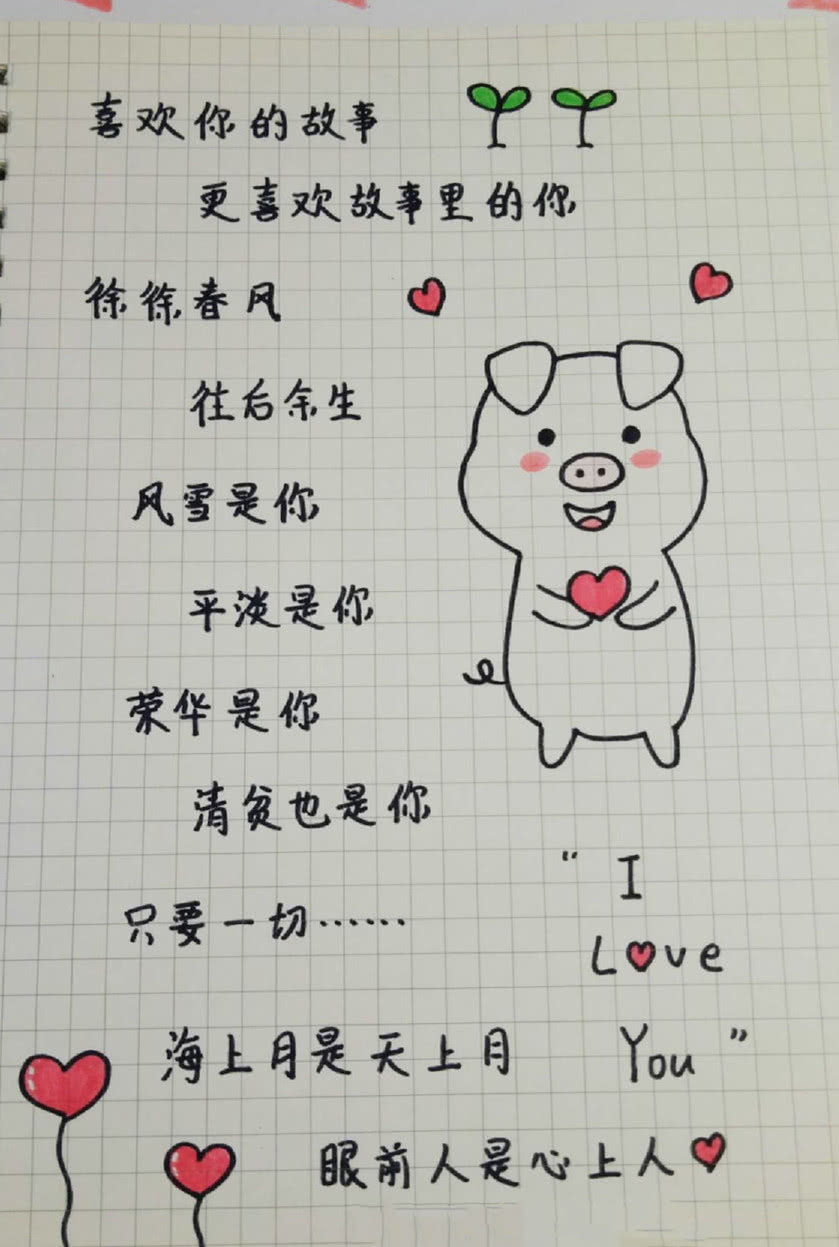 喜欢你的故事
更喜欢故事里的你
徐徐春风
往后余生
风雪是你
平淡是你
荣华是你
清贫也是你
只要一切……
海上月是天上月
眼前人是心上人
“I
Love
You”